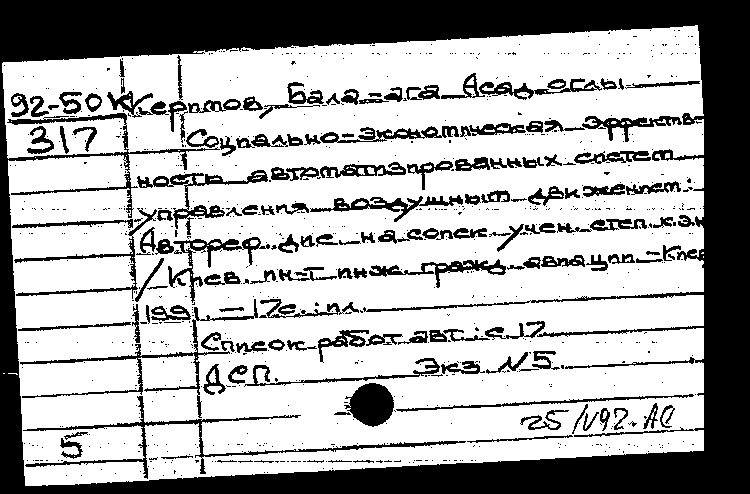 92-50К Керимов, Бала-ага Асад оглы
317 Социально-экономическая эффектив-
ность автоматизированных систем
управления воздушным движением:
Автореф. дис. на соиск. учен. степ. к.э.н
/ Киев. ин-т инж. гражд. авиации. - Киев,
1991. - 17с.: ил.
Список работ авт.: с 17
ДСП. Экз. N5.
25/V92. АС
5